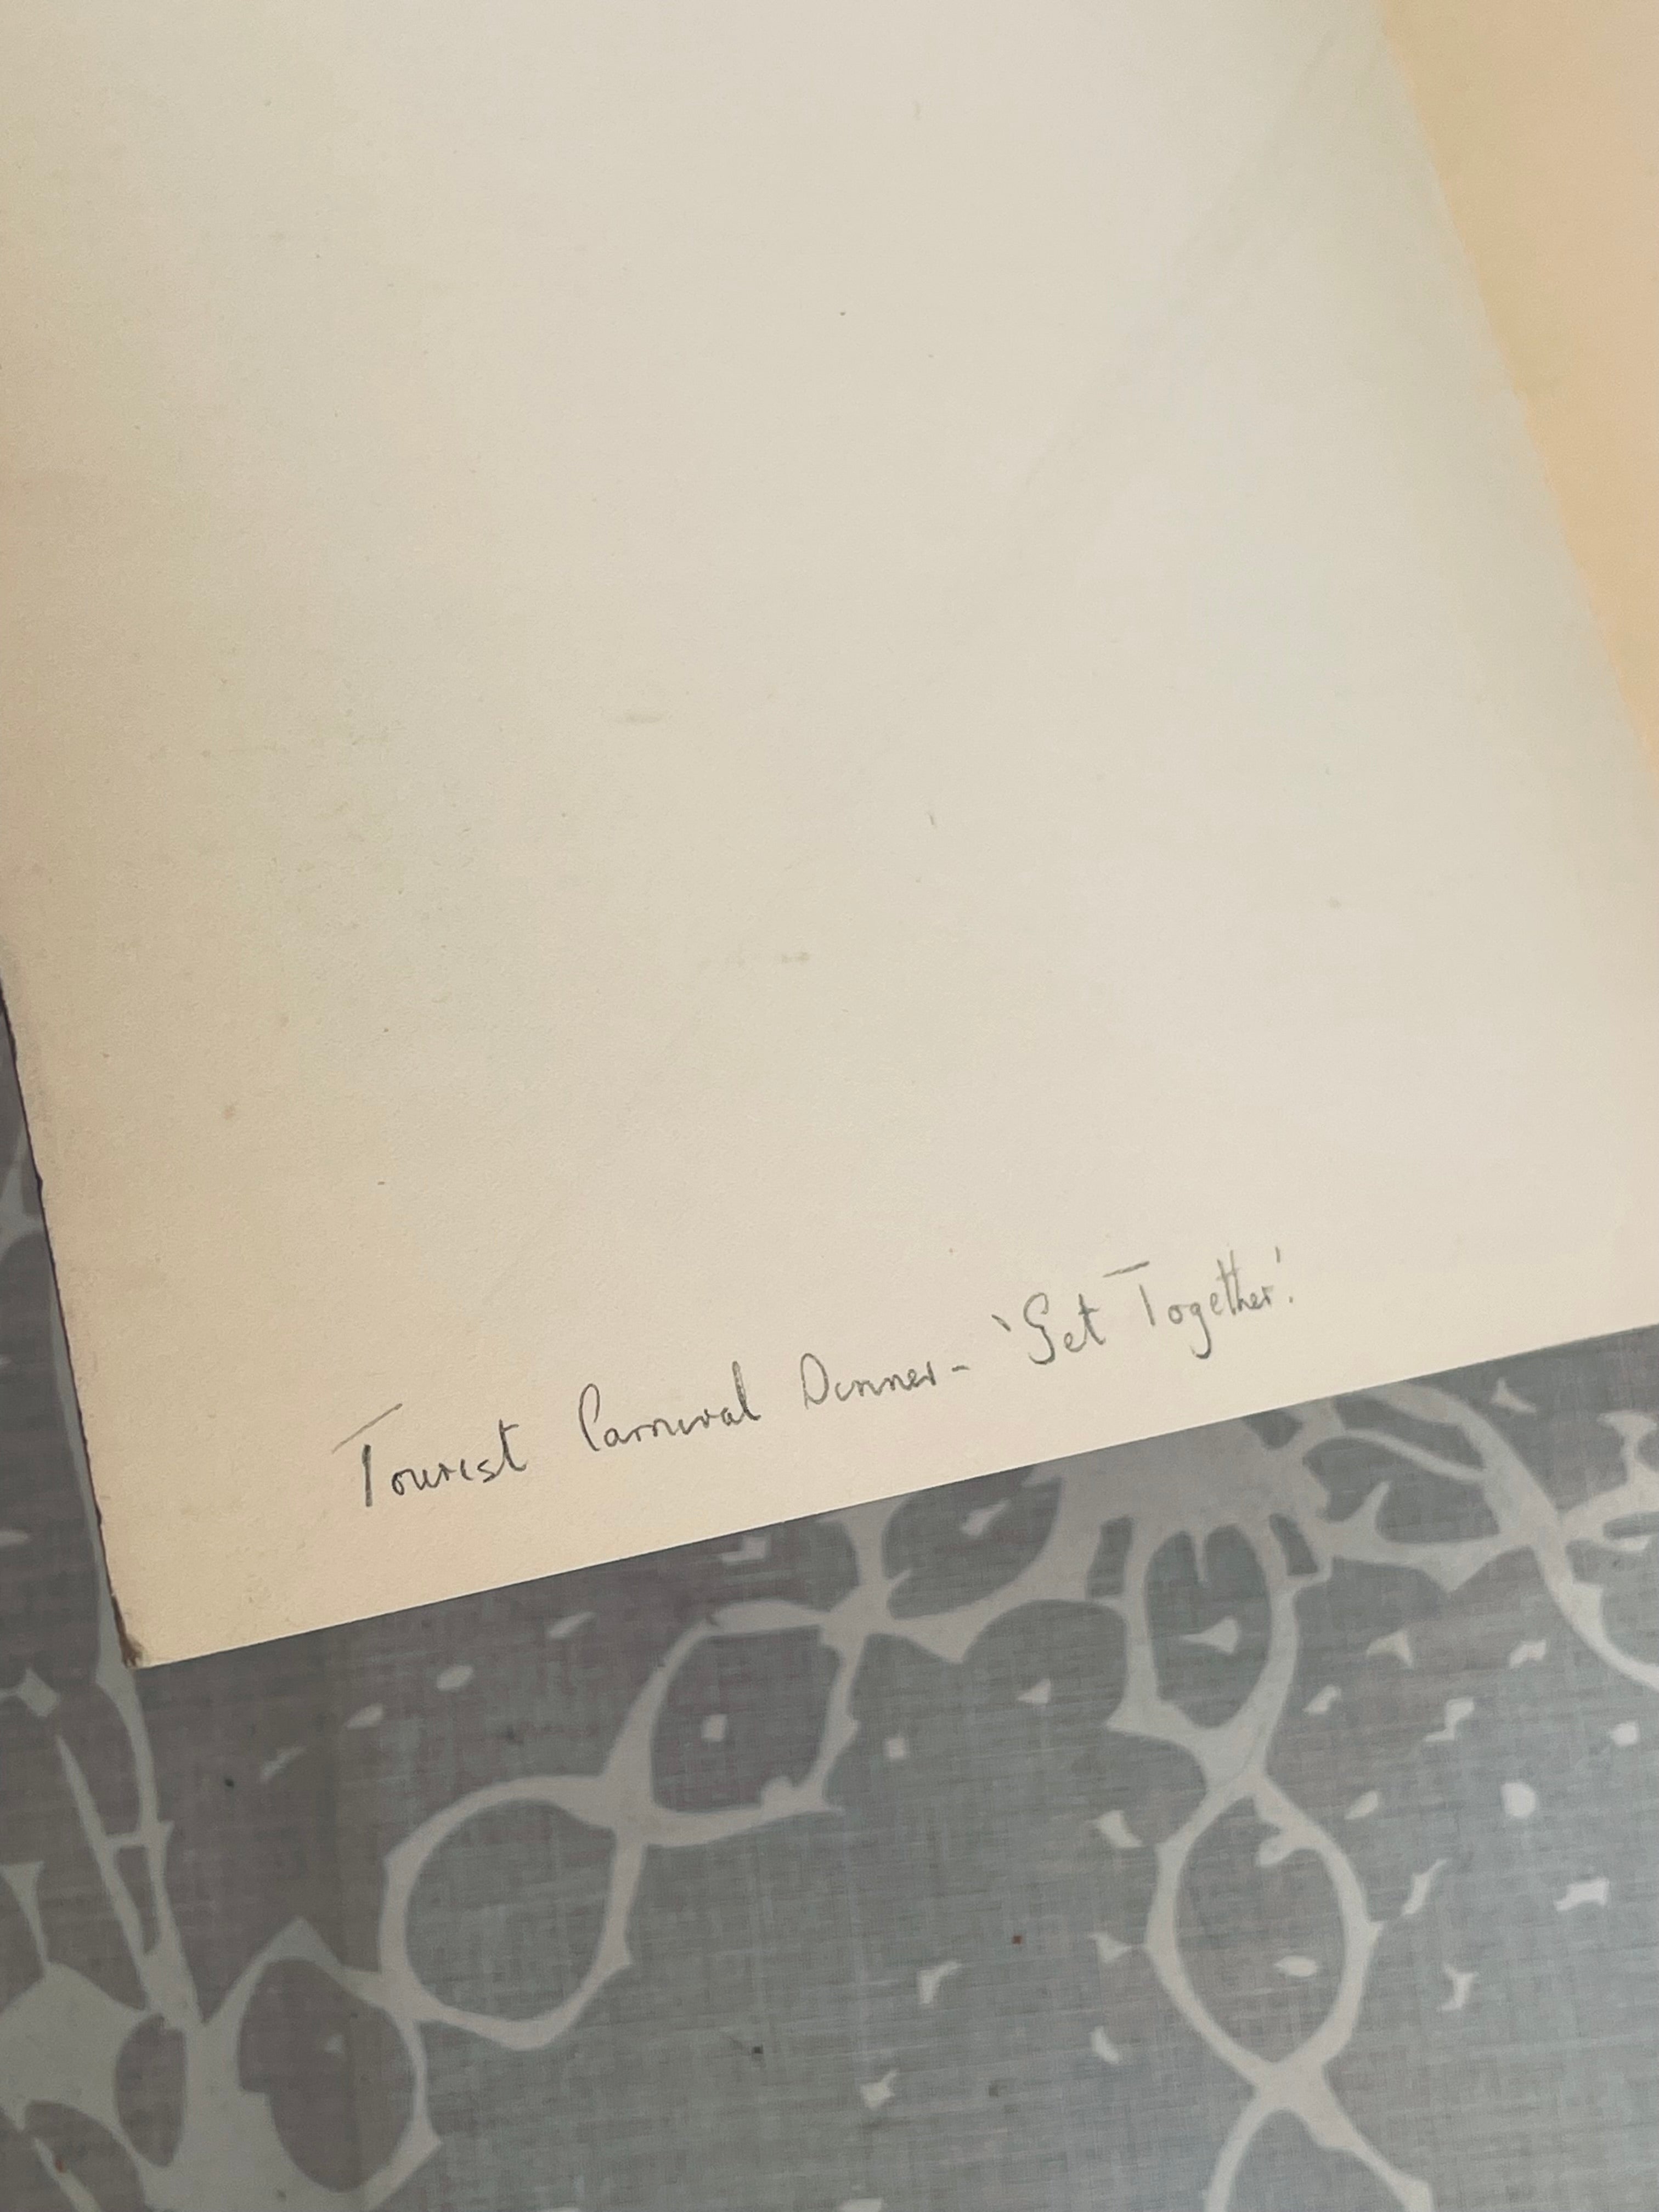 Tourist Carnival Dinner - 'Get Together.'